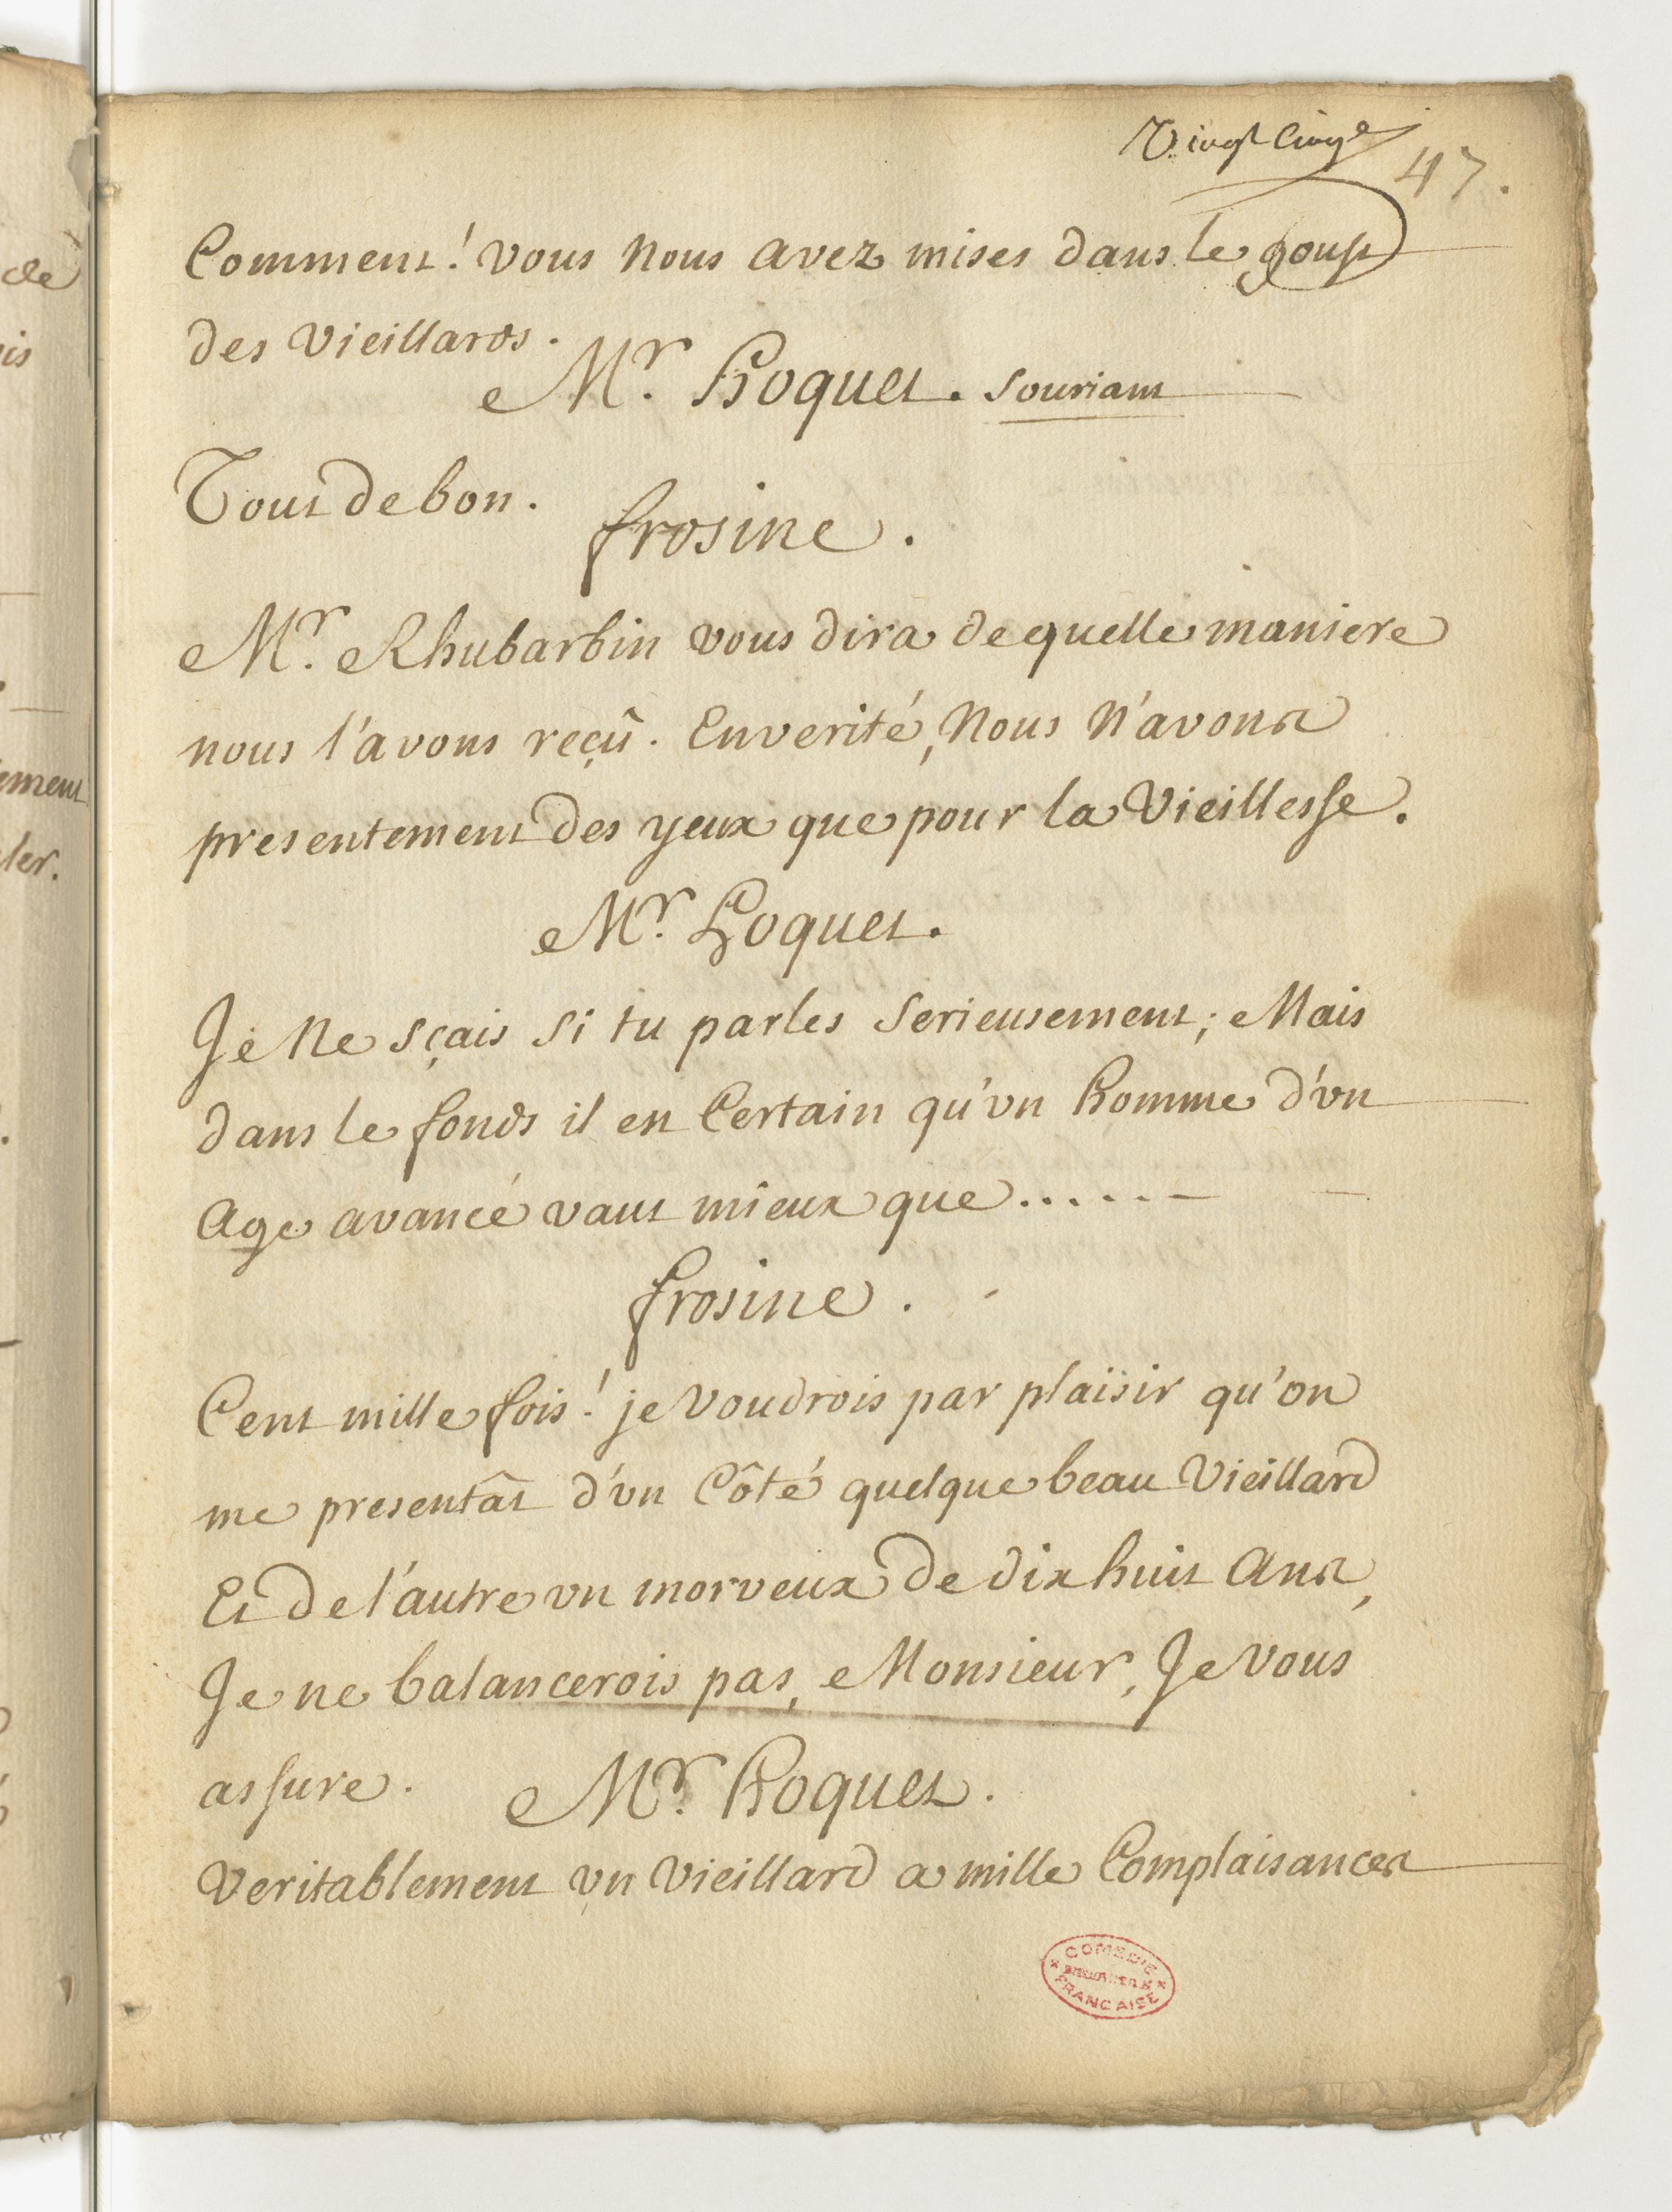 Vingt Cinq^e
47.
Comment! vous nous avez mises dans le goust
des vieillards.
M^r. Hoquet. souriant
Tout de bon.
frosine.
M^r. Rhubarbin vous dira de quelle maniere
nous l'avons reçû. En verité, nous n'avons
presentement des yeux que pour la vieillesse.
M^r. Hoquet.
Je ne sçais si tu parles serieusement; Mais
dans le fonds il est Certain qu'un homme d'un
Age avancé vaut mieux que......
frosine.
Cent mille fois! je voudrois par plaisir qu'on
me presentât d'un Côté quelque beau vieillard
Et de l'autre un morveux de dix huit ans,
Je ne balancerois pas, Monsieur, Je vous
assure.
M^r. Hoquet.
veritablement un vieillard a mille Complaisances
COMEDIE
FRANCAISE
de
is
ement
ler.